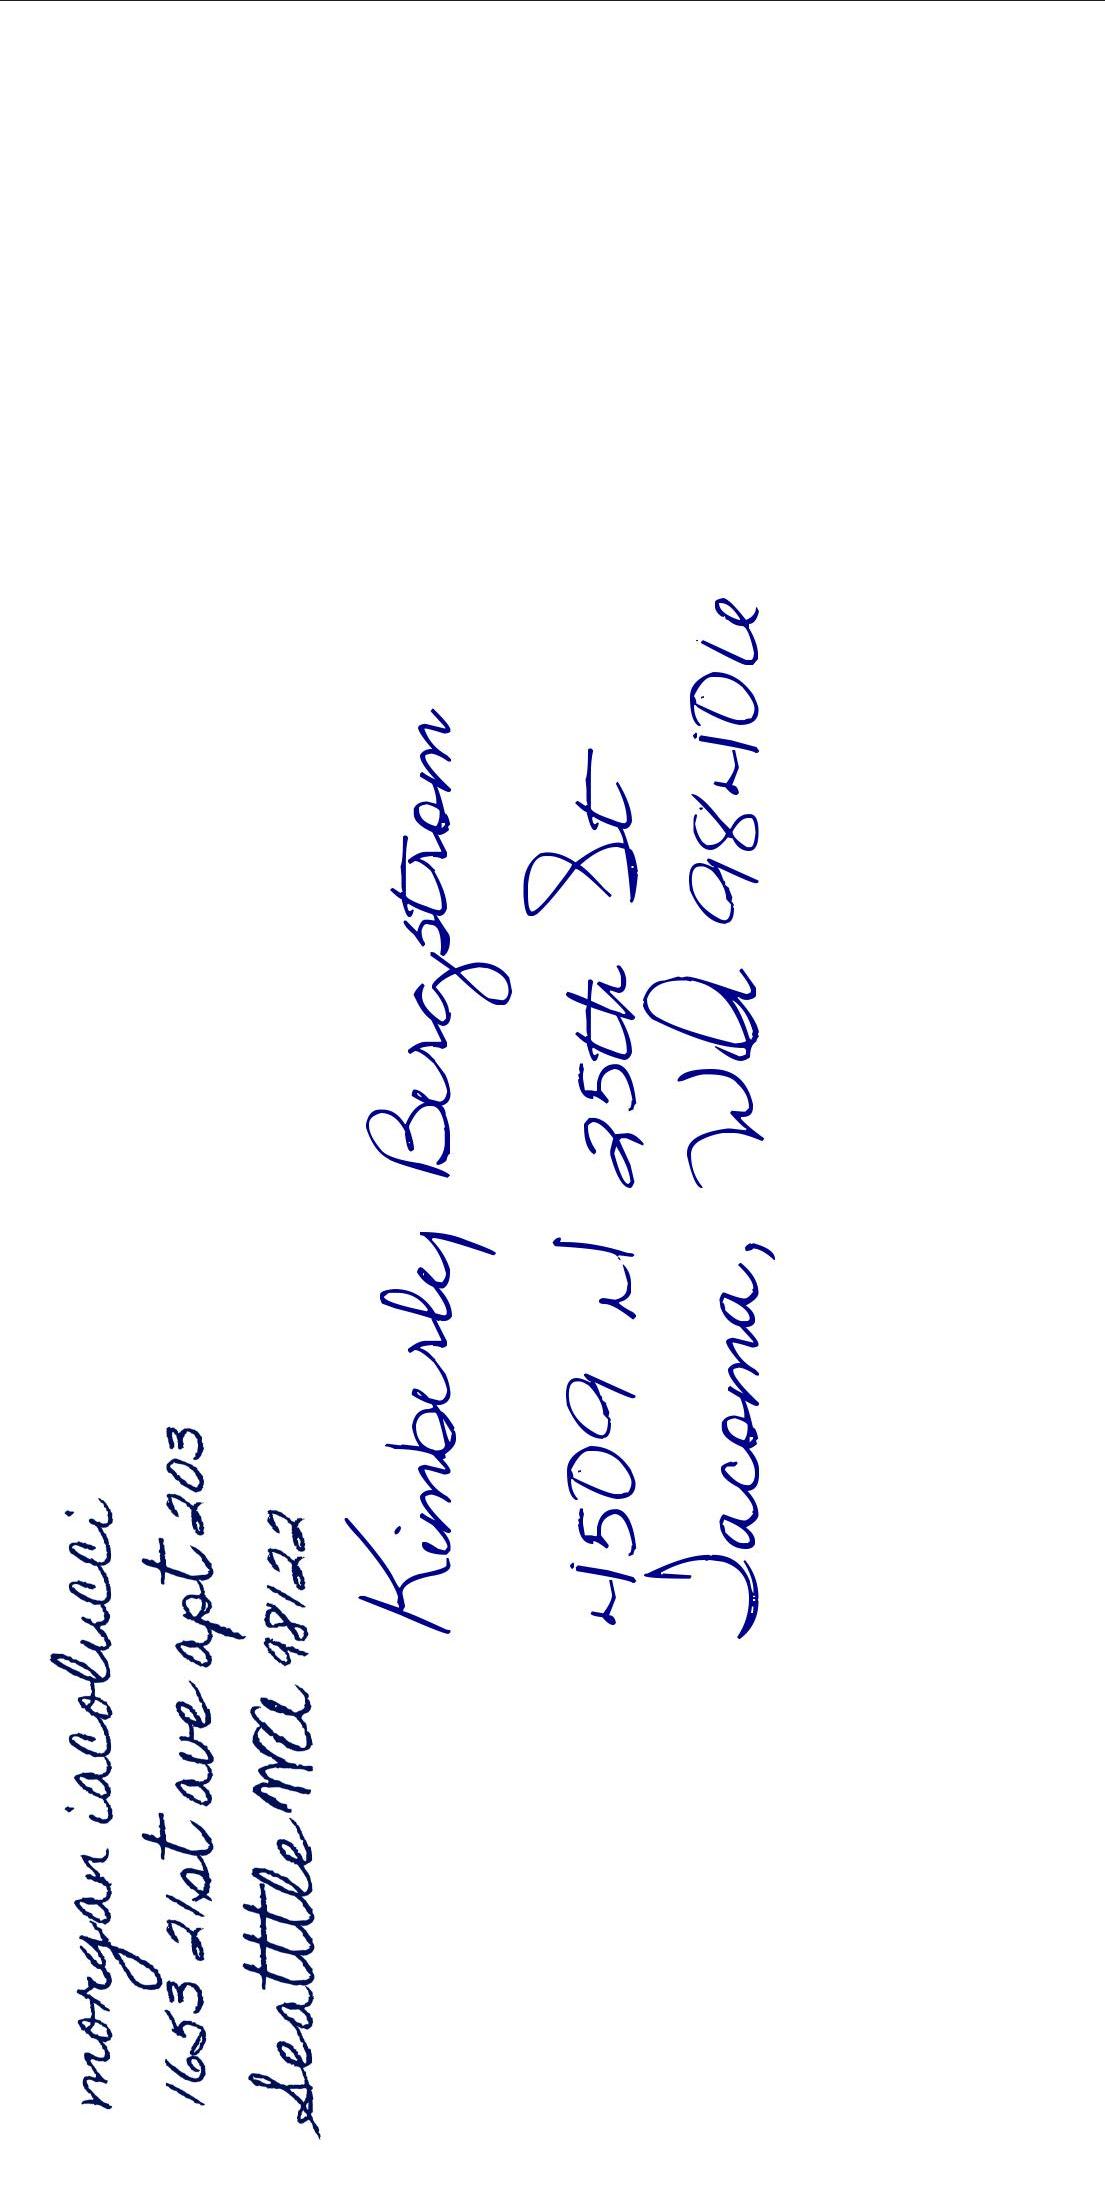 morgan iacolucci
1653 21st ave apt 203
Seattle WA 98122
Kimberly Bergstrom
4509 N 25th St
Tacoma, WA 98406